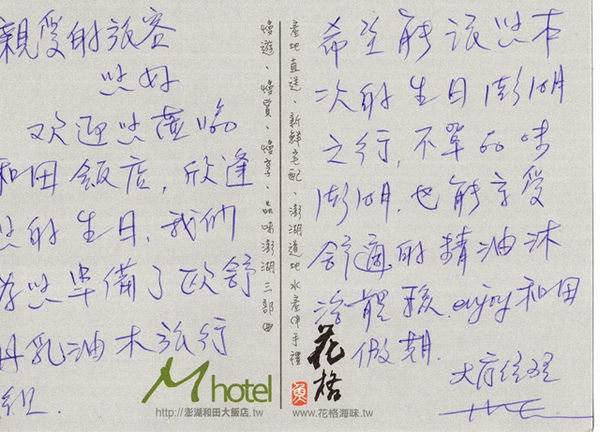 親愛的旅客
您好
欢迎您蒞臨
和田飯店,欣逢
您的生日,我們
為您準備了歐舒
丹乳油木旅行
組.
慢遊、慢賞、慢享、品味澎湖三部曲
M hotel
http://澎湖和田大飯店.tw
產地直送、新鮮宅配、澎湖道地水產伴手禮
希望能讓您本
次的生日澎湖
之行,不單品味
澎湖,也能享受
舒適的精油沐
浴體驗.enjoy和田
假期.
经理
花格
魚
www.花格海味.tw